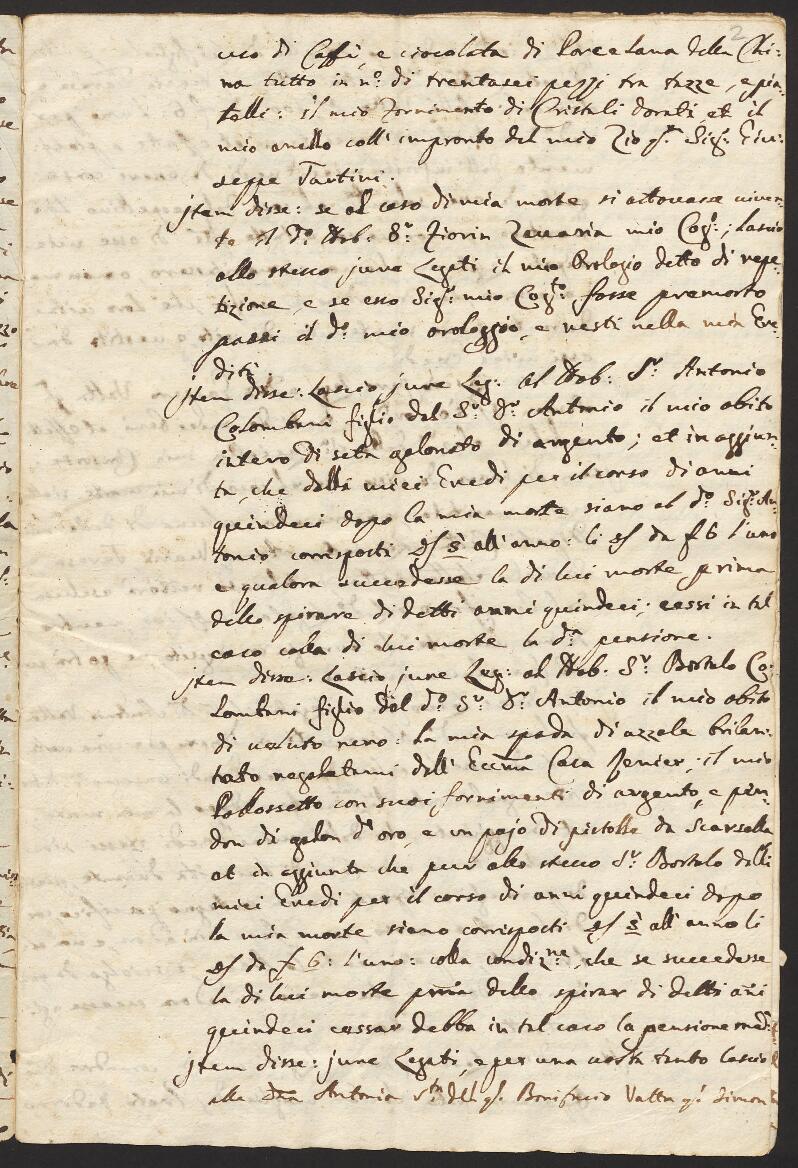 2
uso di Caffè, e ciocolata di Porcelana della Chi:
na tutto in n.º di trentasei pezzi tra tazze, e pia:
telli: il mio Fornimento di Cristali dorati, et il
mio anello coll'impronto del mio Zio q.m Sig.r Giu:
seppe Tartini.
Item disse: se al caso di mia morte si attrovasse viven:
te il D.º Nob. S.r Fiorin Zaccaria mio Cog.to; lascio
allo stesso jure Legati il mio Orologio detto di repe:
tizione, e se esso Sig.r mio Cog.to fosse premorto
passi il d.º mio orologgio, e resti nella mia Ere:
dità.
Item disse: Lascio jure Leg: al Nob. S.r Antonio
Colombani figlio del S.r D.r Antonio il mio abito
intero di seta galonato di argento; et in aggiun:
ta, che dalli miei Eredi per il corso di anni
quindeci dopo la mia morte siano al d.º Sig.r An:
tonio corrisposti all'anno: li da £ 6 l'uno
e qualora succedesse la di lui morte prima
dello spirare di detti anni quindeci; cessi in tal
caso colla di lui morte la d.a pensione.
Item disse: Lascio jure Leg: al Nob. S.r Bortolo Co:
lombani figlio del d.º S.r D.r Antonio il mio abito
di veluto nero: la mia spada di azzale brilan:
tato regalatami dall'Eccma Casa Venier; il mio
Palossetto con suoi fornimenti di argento, e pen:
don di galon d'oro, e un pajo di pistolle da scarsella
et in aggiunta che pur allo stesso S.r Bortolo dalli
miei Eredi per il corso di anni quindeci dopo
la mia morte siano corrisposti all'anno li
da £ 6: l'uno: colla condiz.ne, che se succedesse
la di lui morte pria dello spirar di detti ani
quindeci cessar debba in tal caso la pensione med.a
Item disse: jure Legati, e per una volta tanto lascio
alla Antonia dell q.m Bonifacio Vatta q.m Simon